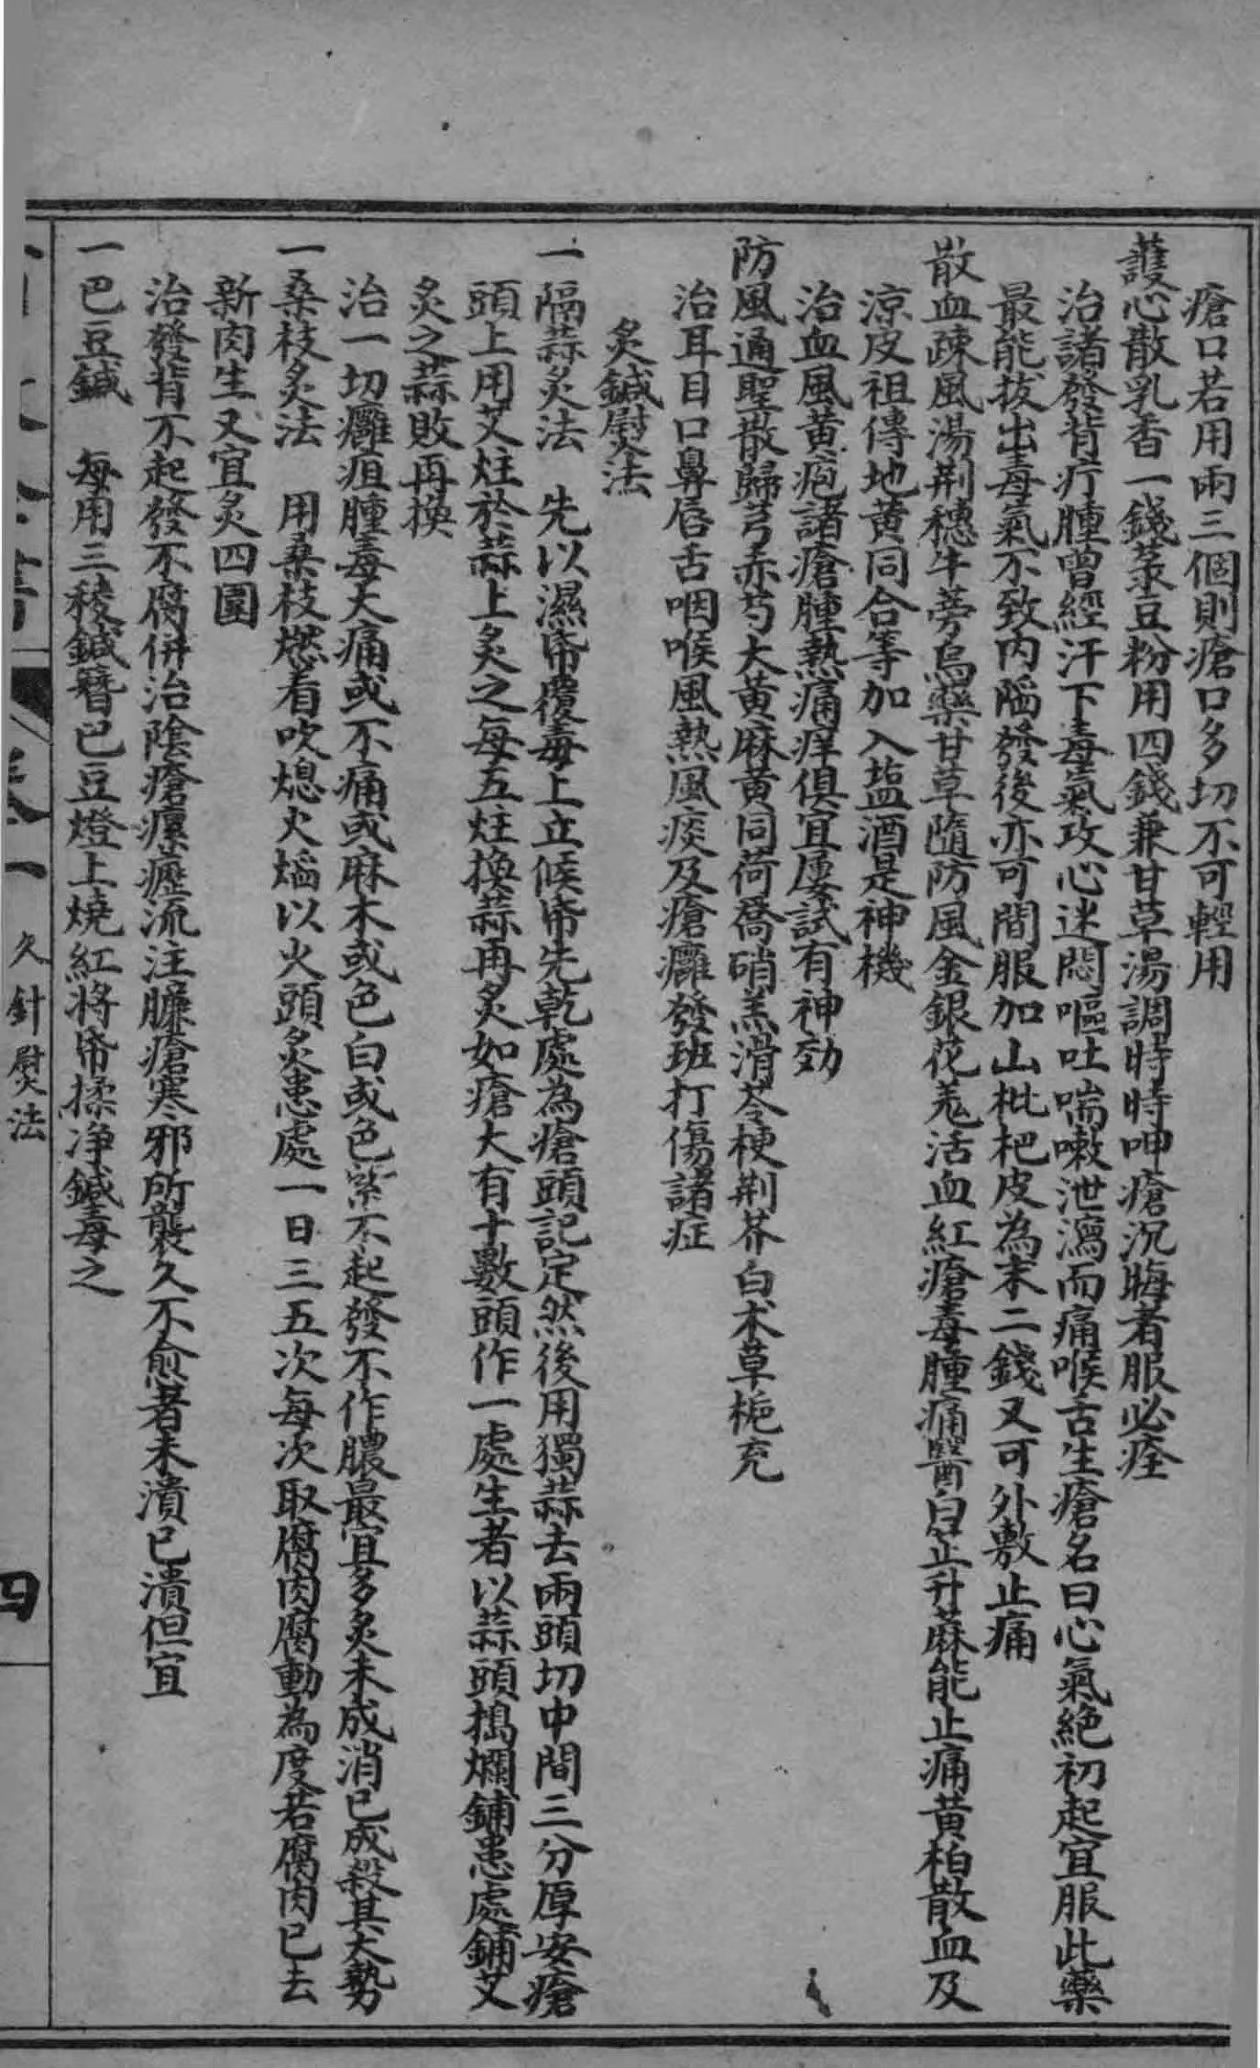 瘡口若用兩三個則瘡口多切不可輕用
護心散乳香一錢菉豆粉用四錢兼甘草湯調時時呷瘡沉晦者服必痊
治諸發背疔腫曾經汗下毒氣攻心迷悶嘔吐喘嗽泄瀉而痛喉舌生瘡名曰心氣絶初起宜服此藥
最能拔出毒氣不致內陷發後亦可間服加山枇杷皮為末二錢又可外敷止痛
散血疎風湯荆穗牛蒡烏藥甘草隨防風金銀花羌活血紅瘡毒腫痛醫白芷升蔴能止痛黃柏散血及
涼皮祖傳地黃同合等加入盐酒是神機
治血風黃疱諸瘡腫熱痛痒俱宜屢試有神効
防風通聖散歸芎赤芍大黃麻黃同荷喬硝羔滑芩梗荆芥白术草梔充
治耳目口鼻唇舌咽喉風熱風痰及瘡癰發班打傷諸症
炙鍼熨法
一隔蒜炙法　先以濕帋覆毒上立候帋先乾處為瘡頭記定然後用獨蒜去兩頭切中間三分厚安瘡
頭上用艾炷於蒜上炙之每五炷換蒜再炙如瘡大有十數頭作一處生者以蒜頭搗爛鋪患處鋪艾
炙之蒜敗再換
治一切癰疽腫毒大痛或不痛或麻木或色白或色紫不起發不作膿最宜多炙未成消已成殺其大勢
一桑枝炙法　用桑枝燃着吹熄火熖以火頭炙患處一日三五次每次取腐肉腐動為度若腐肉已去
新肉生又宜炙四圍
治發背不起發不腐併治陰瘡瘰癧流注臁瘡寒邪所襲久不愈者未潰已潰但宜
一巴豆鍼　每用三稜鍼簪巴豆燈上燒紅將帋揉净鍼毒之
卷一
久針熨法
四